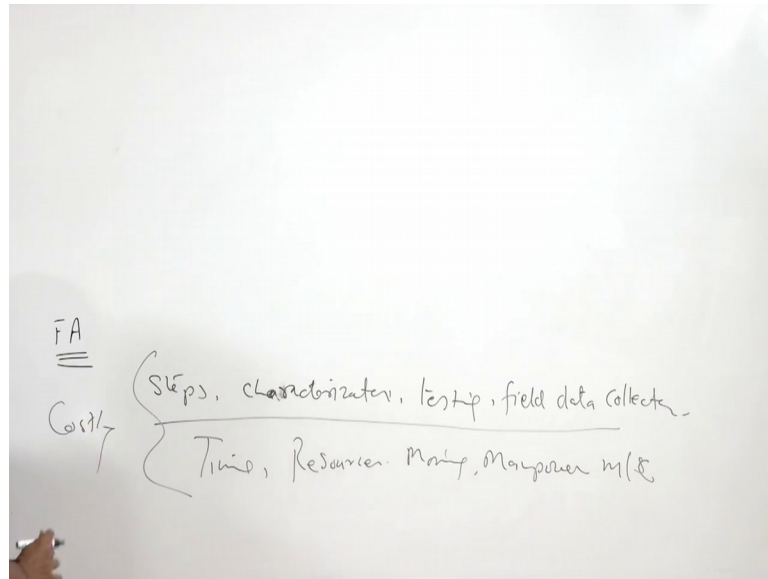 FA
Costly
Steps, characterization, testing, field data collection.
Time, Resources. Money, Manpower m/c